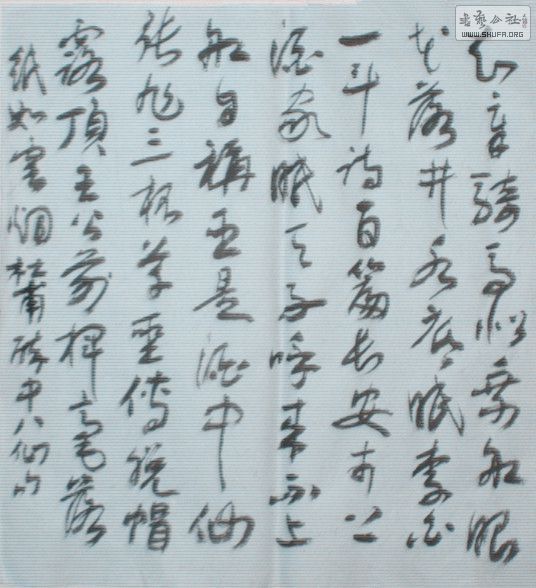 知章騎馬似乘船眼
花落井水底眠李白
一斗詩百篇長安市上
酒家眠天子呼来不上
船自稱臣是酒中仙
張旭三杯草聖傳脫帽
露頂王公前揮毫落
紙如雲烟杜甫醉中八仙句
书艺公社
WWW.SHUFA.ORG